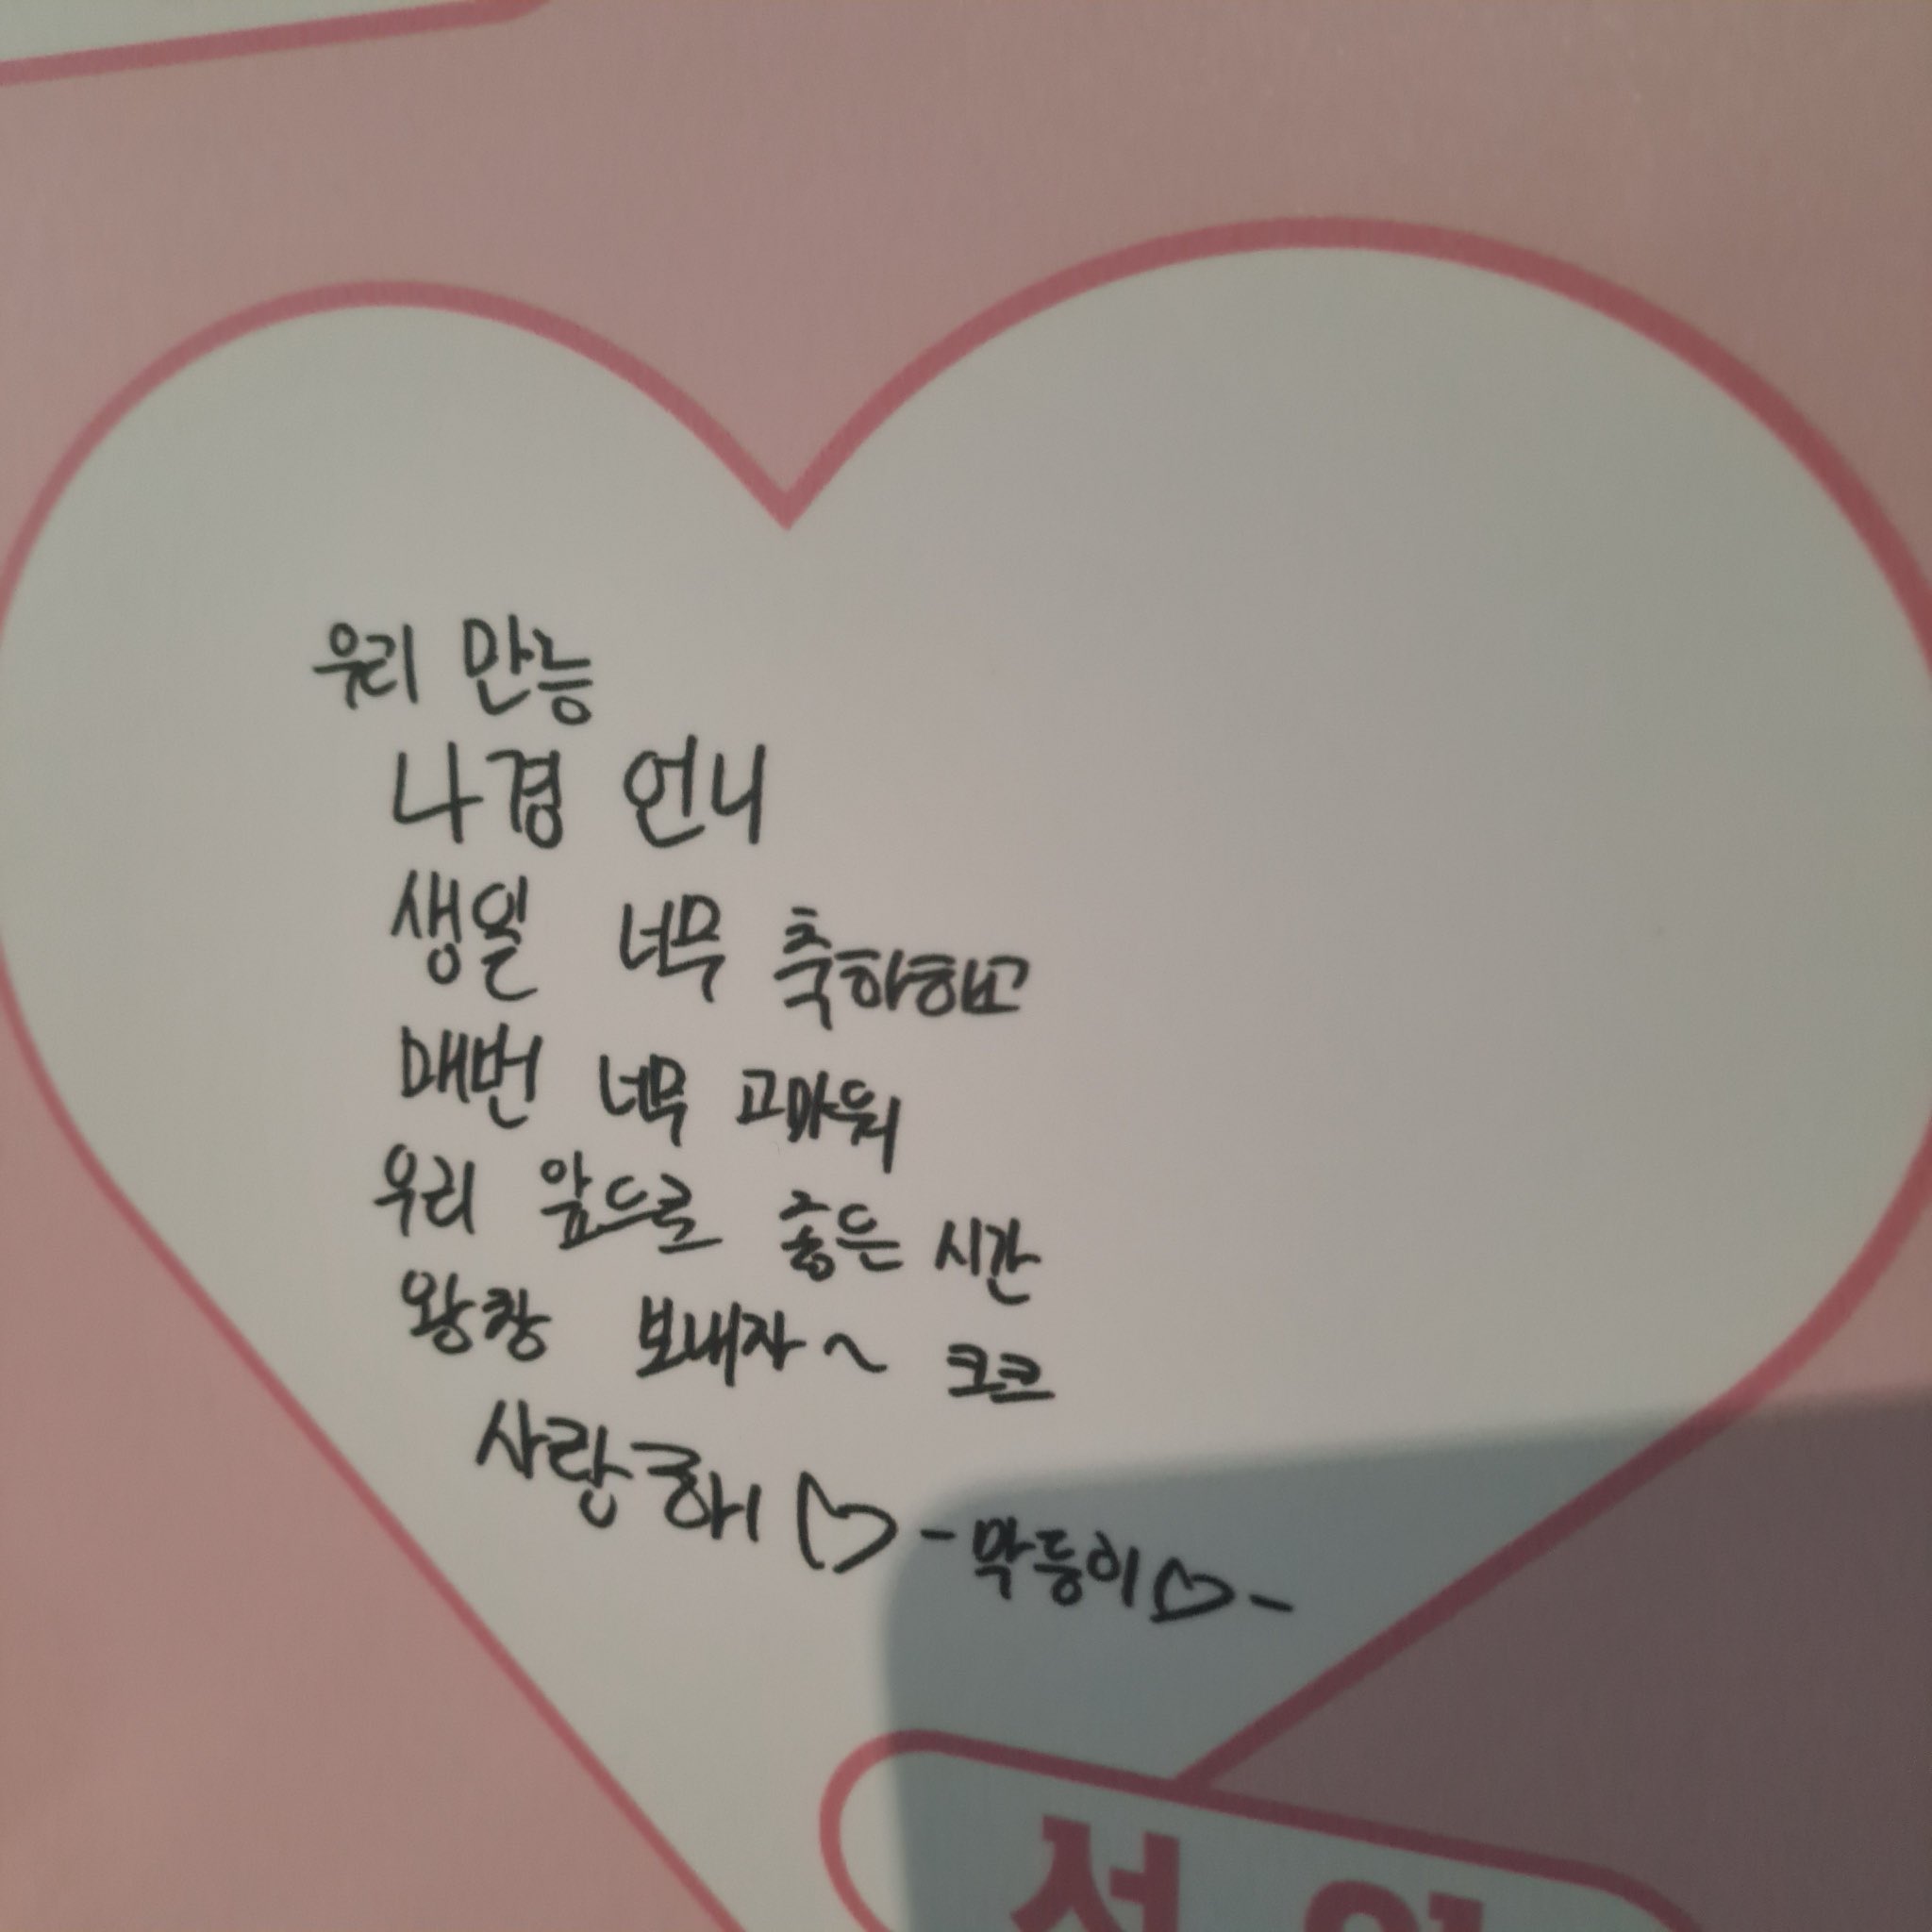 우리 만능
나경 언니
생일 너무 축하하고
매번 너무 고마워
우리 앞으로 좋은 시간
왕창 보내자~ ㅋㅋ
사랑해♡ -막둥이♡-